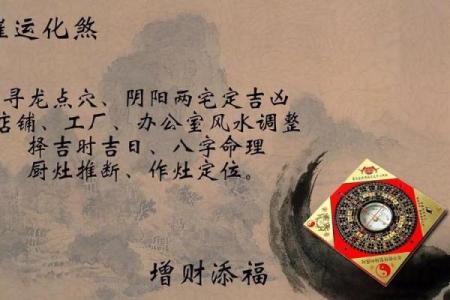 运化煞
寻龙点穴、阴阳两宅定吉凶
店铺、工厂、办公室风水调整
择吉时吉日、八字命理
厨灶推断、作灶定位。
增财添福